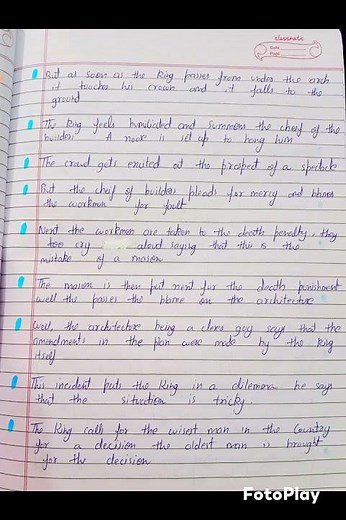 classmate
Date
Page
But as soon as the King passes from under the arch
it touches his crown and it falls to the
ground
The King feels humiliated and summons the chief of the
builder. A noose is set up to hang him
The crowd gets excited at the prospect of a spectacle
But the chief of builders pleads for mercy and blames
the workmen for fault
Next the workmen are taken to the death penalty, they
too cry aloud saying that this is the
mistake of a mason
The mason is then put next for the death punishment
well the passes the blame on the architecture
Well, the architecture being a clever guy says that the
amendments in the plan were made by the King
itself
This incident puts the King in a dilemma he says
that the situation is tricky.
The King calls for the wisest man in the Country
for a decision the oldest man is brought
for the decision
FotoPlay